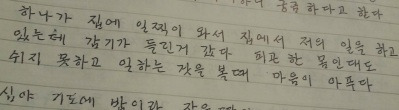 궁금하다고 한다
하나가 집에 일찍이 와서 집에서 저의 일을 하고
있는데 감기가 들린거 같다 피곤한 몸인데도
쉬지 못하고 일하는 것을 볼때 마음이 아프다
심야 기도에 밤이라